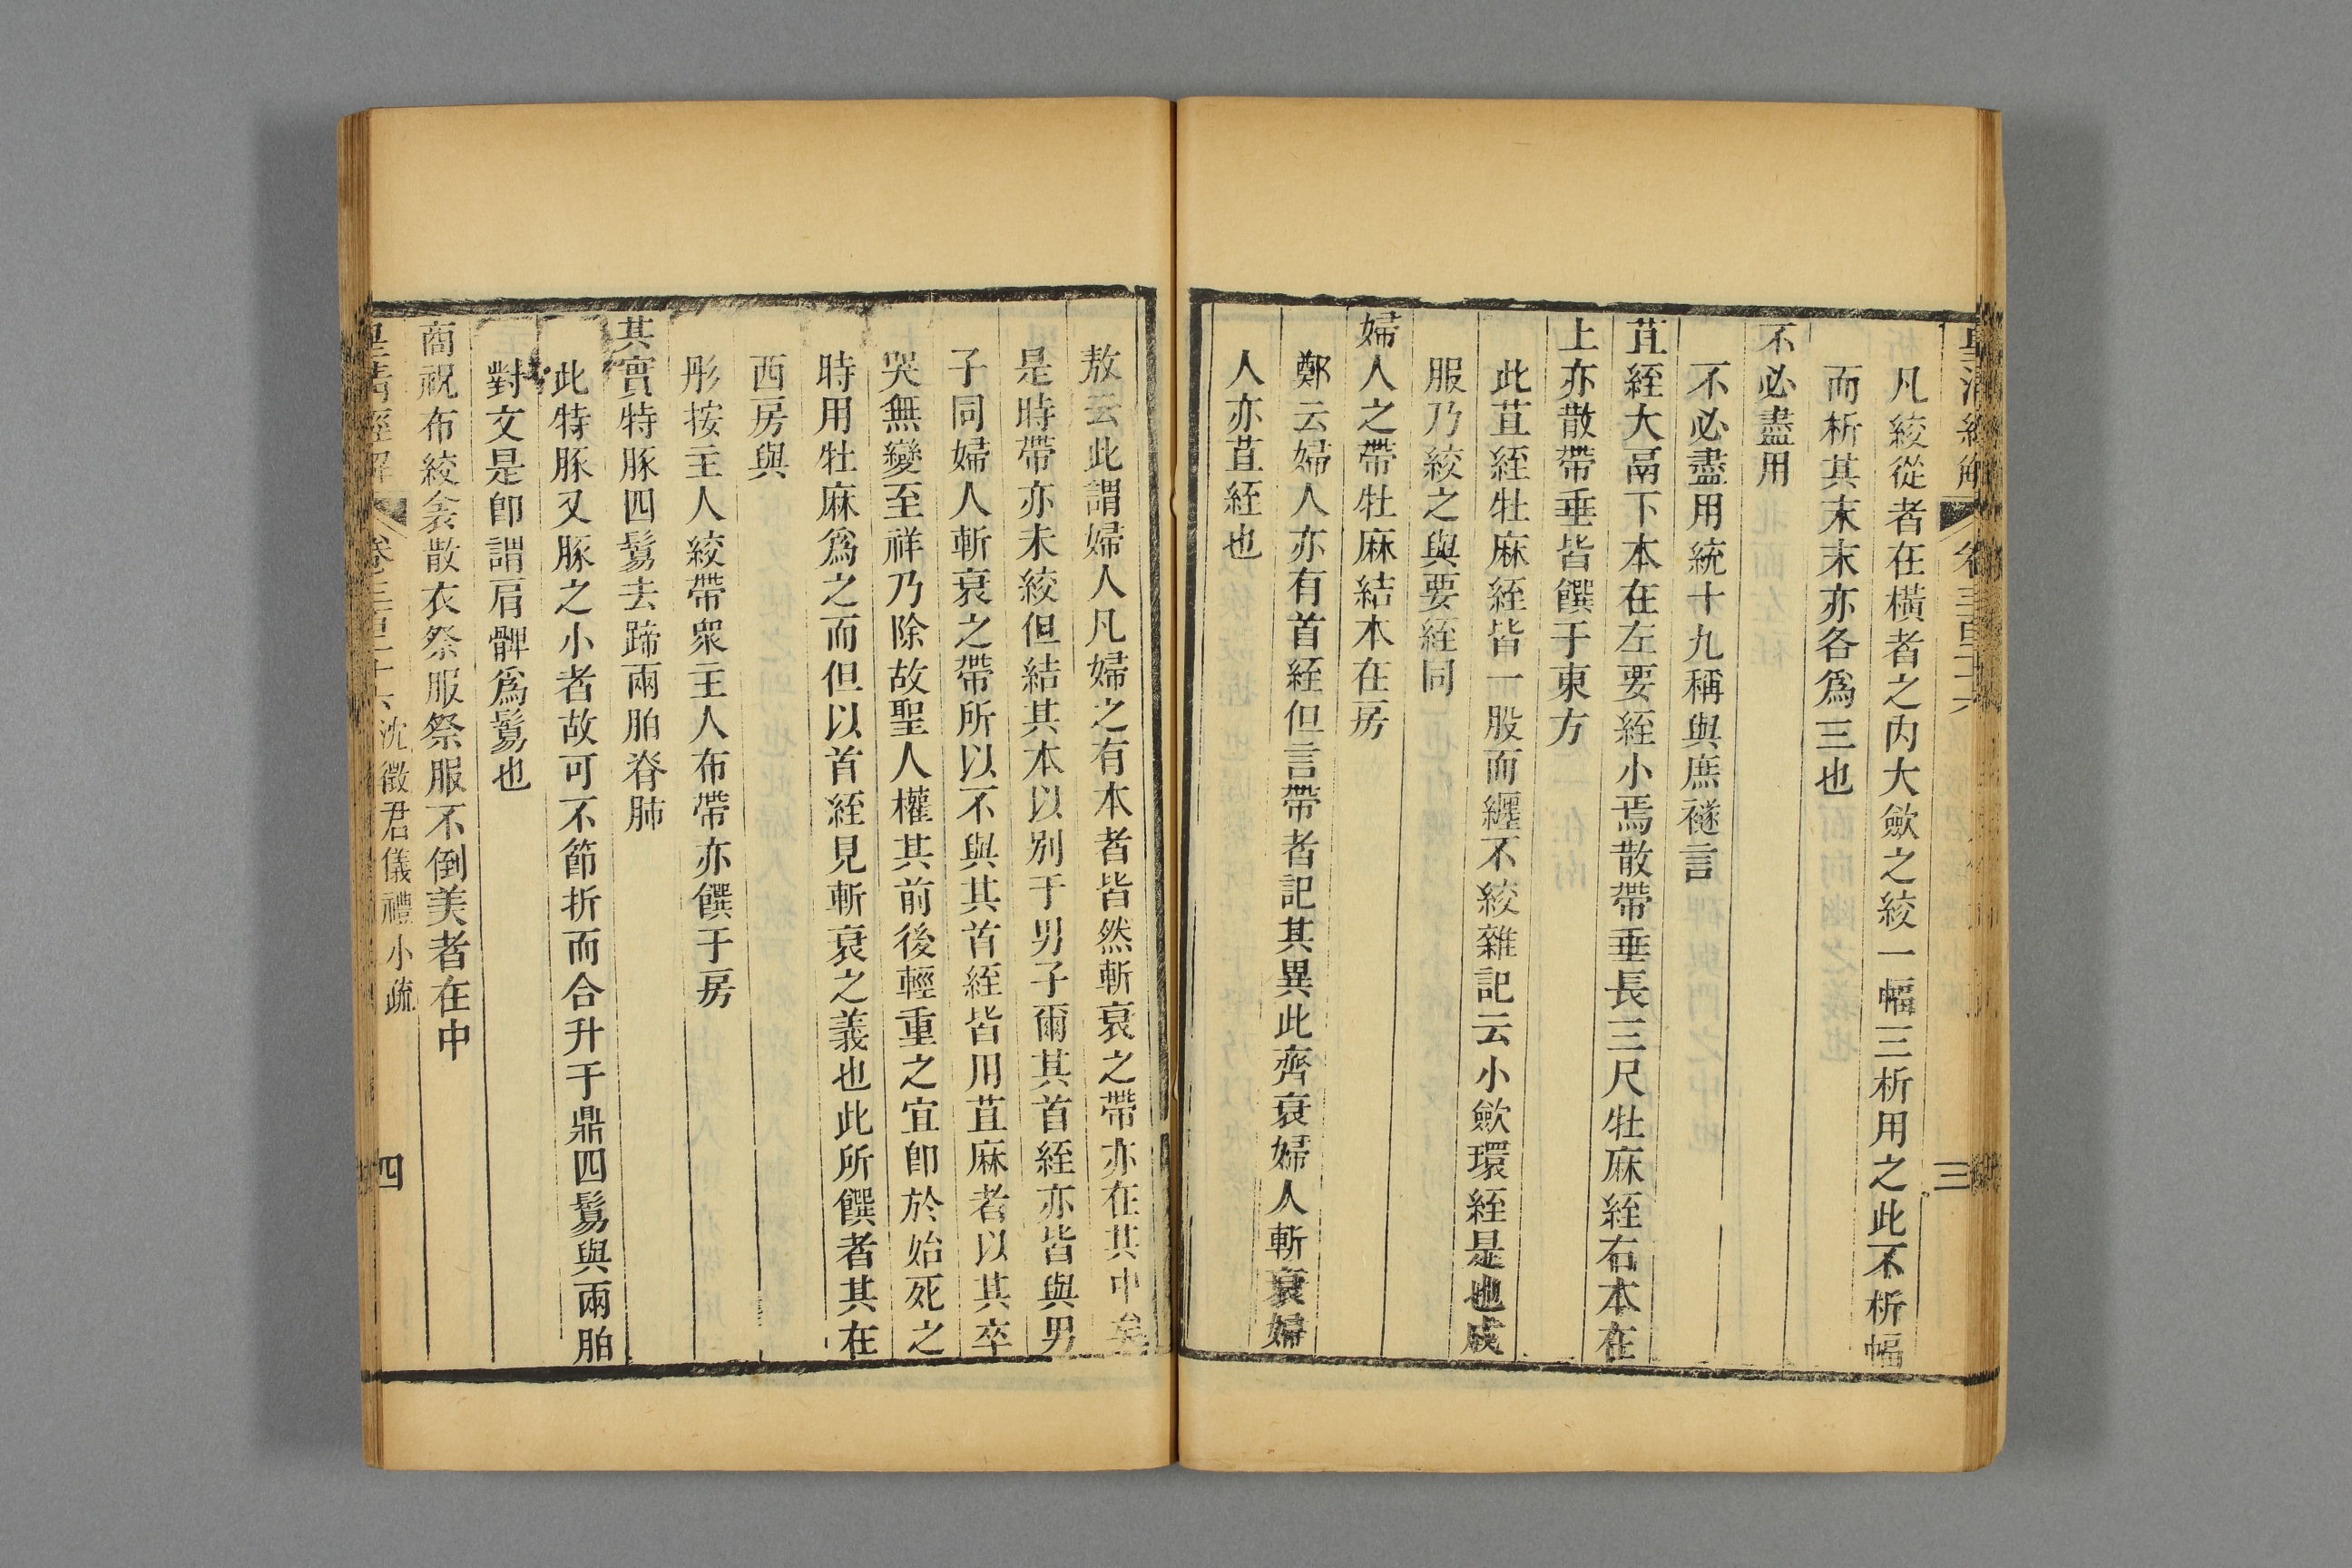 皇清經解 卷三百二十六 三
凡絞從者在橫者之內大斂之絞一幅三析用之此不析幅
而析其末末亦各爲三也
不必盡用
不必盡用統十九稱與庶襚言
苴絰大鬲下本在左要絰小焉散帶垂長三尺牡麻絰右本在
上亦散帶垂皆饌于東方
此苴絰牡麻絰皆一股而纒不絞雜記云小斂環絰是也成
服乃絞之與要絰同
婦人之帶牡麻結本在房
鄭云婦人亦有首絰但言帶者記其異此齊衰婦人斬衰婦
人亦苴絰也
敖云此謂婦人凡婦之有本者皆然斬衰之帶亦在其中矣
是時帶亦未絞但結其本以别于男子爾其首絰亦皆與男
子同婦人斬衰之帶所以不與其首絰皆用苴麻者以其卒
哭無變至祥乃除故聖人權其前後輕重之宜卽於始死之
時用牡麻爲之而但以首絰見斬衰之義也此所饌者其在
西房與
彤按主人絞帶衆主人布帶亦饌于房
其實特豚四鬄去蹄兩胉脊肺
此特豚又豚之小者故可不節折而合升于鼎四鬄與兩胉
對文是卽謂肩髀爲鬄也
商祝布絞衾散衣祭服祭服不倒美者在中
皇清經解 卷三百二十六 沈徵君儀禮小疏 四